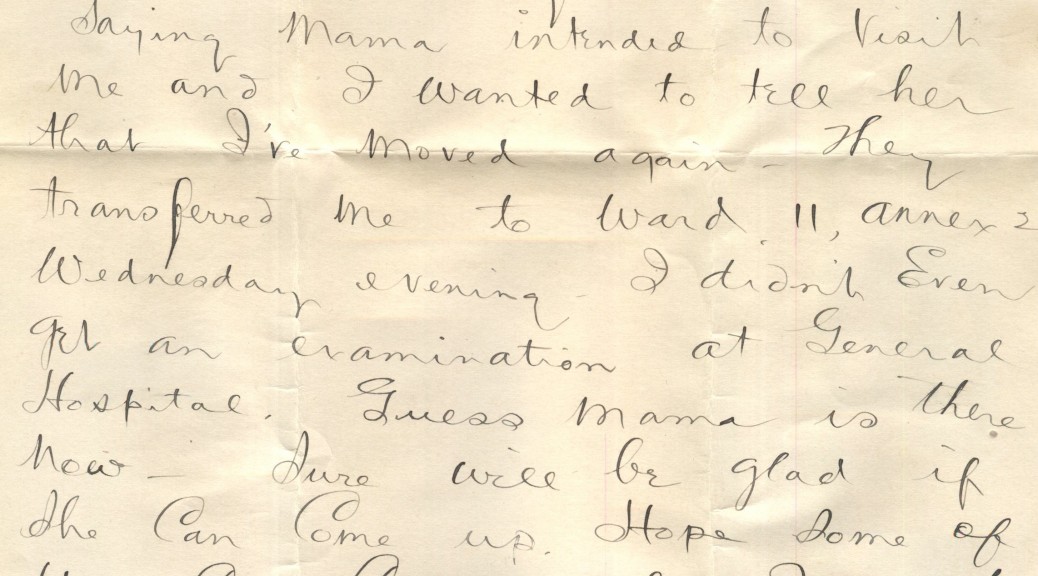 Saying Mama intended to Visit
Me and I wanted to tell her
that I've Moved again - They
transferred Me to Ward 11, annex 2
Wednesday evening - I didn't Even
get an examination at General
Hospital. Guess Mama is there
Now - Sure will be glad if
She Can Come up. Hope Some of